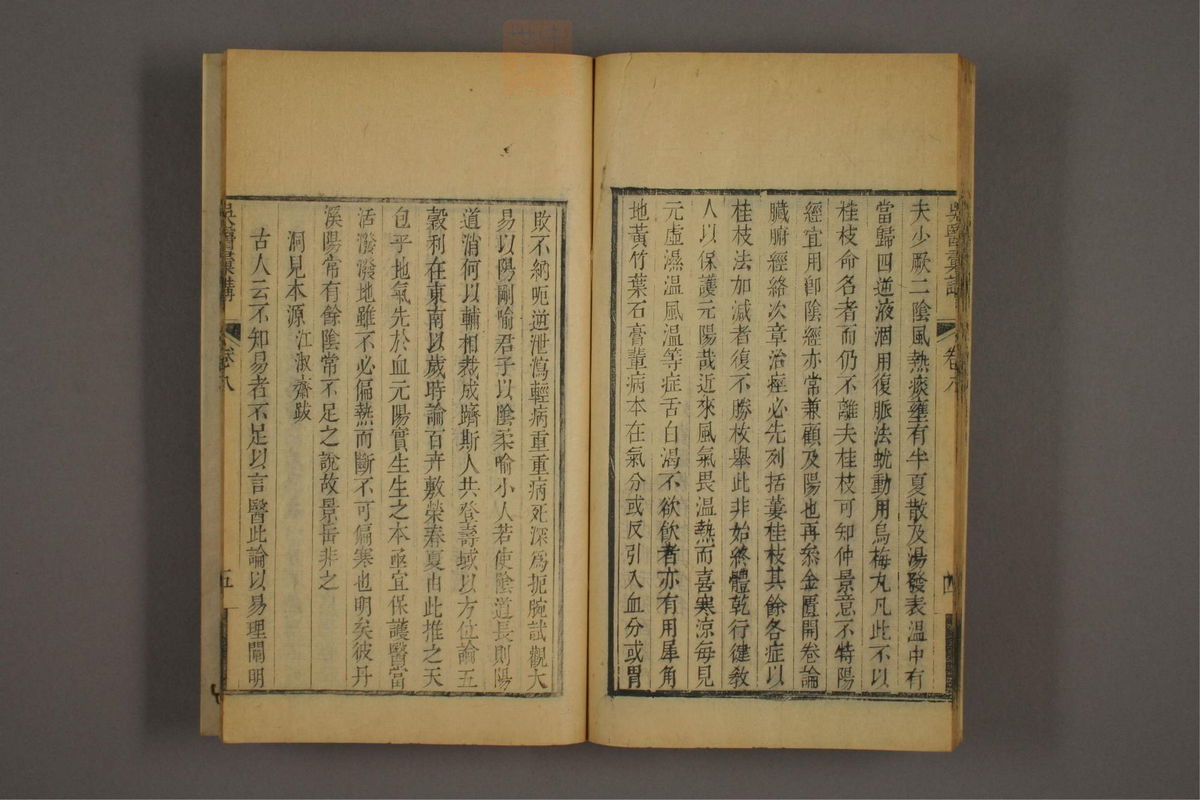 吳醫彙講
卷八
四
夫少厥二陰風熱痰壅有半夏散及湯發表溫中有
當歸四逆液涸用復脈法蚘動用烏梅丸凡此不以
桂枝命名者而仍不離夫桂枝可知仲景意不特陽
經宜用卽陰經亦常兼顧及陽也再叅金匱開卷論
臟腑經絡次章治痙必先列括蔞桂枝其餘各症以
桂枝法加減者復不勝枚舉此非始終體乾行健敎
人以保護元陽哉近來風氣畏溫熱而喜寒涼每見
元虛濕溫風溫等症舌白渴不欲飮者亦有用犀角
地黃竹葉石膏輩病本在氣分或反引入血分或胃
敗不納呃逆泄瀉輕病重重病死深爲扼腕試觀大
易以陽剛喻君子以陰柔喻小人若使陰道長則陽
道消何以輔相裁成躋斯人共登壽域以方位論五
穀利在東南以歲時論百卉敷榮春夏由此推之天
包乎地氣先於血元陽實生生之本亟宜保護醫當
活潑潑地雖不必偏熱而斷不可偏寒也明矣彼丹
溪陽常有餘陰常不足之說故景岳非之
洞見本源 江淑齋跋
古人云不知易者不足以言醫此論以易理闡明
吳醫彙講
卷八
五